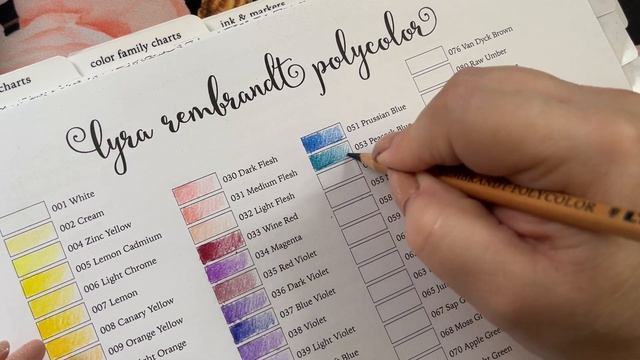 ink & markers
color family charts
charts
lyra rembrandt polycolor
001 White
002 Cream
004 Zinc Yellow
005 Lemon Cadmium
006 Light Chrome
007 Lemon
008 Canary Yellow
009 Orange Yellow
Orange
030 Dark Flesh
031 Medium Flesh
032 Light Flesh
033 Wine Red
034 Magenta
035 Red Violet
036 Dark Violet
037 Blue Violet
038 Violet
039 Light Violet
Blue
051 Prussian Blue
053 Peacock Blue
055
058
059
065
067 Sap
068 Moss
070 Apple Green
076 Van Dyck Brown
Raw Umber
REMBRANDT-POLYCOLOR